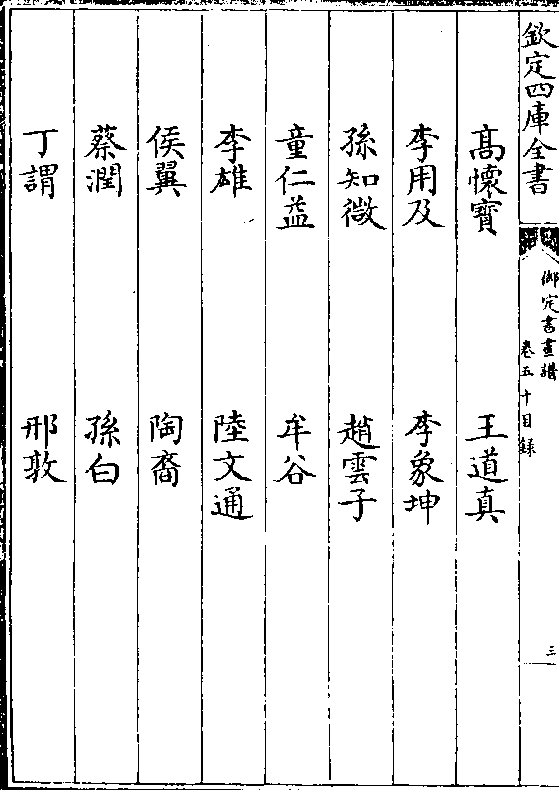 欽定四庫全書
御定書畫譜
卷五十目録
三
髙懷寶　王道真
李用及　李象坤
孫知微　趙雲子
童仁益　牟谷
李雄　陸文通
侯翼　陶裔
蔡潤　孫白
丁謂　邢敦